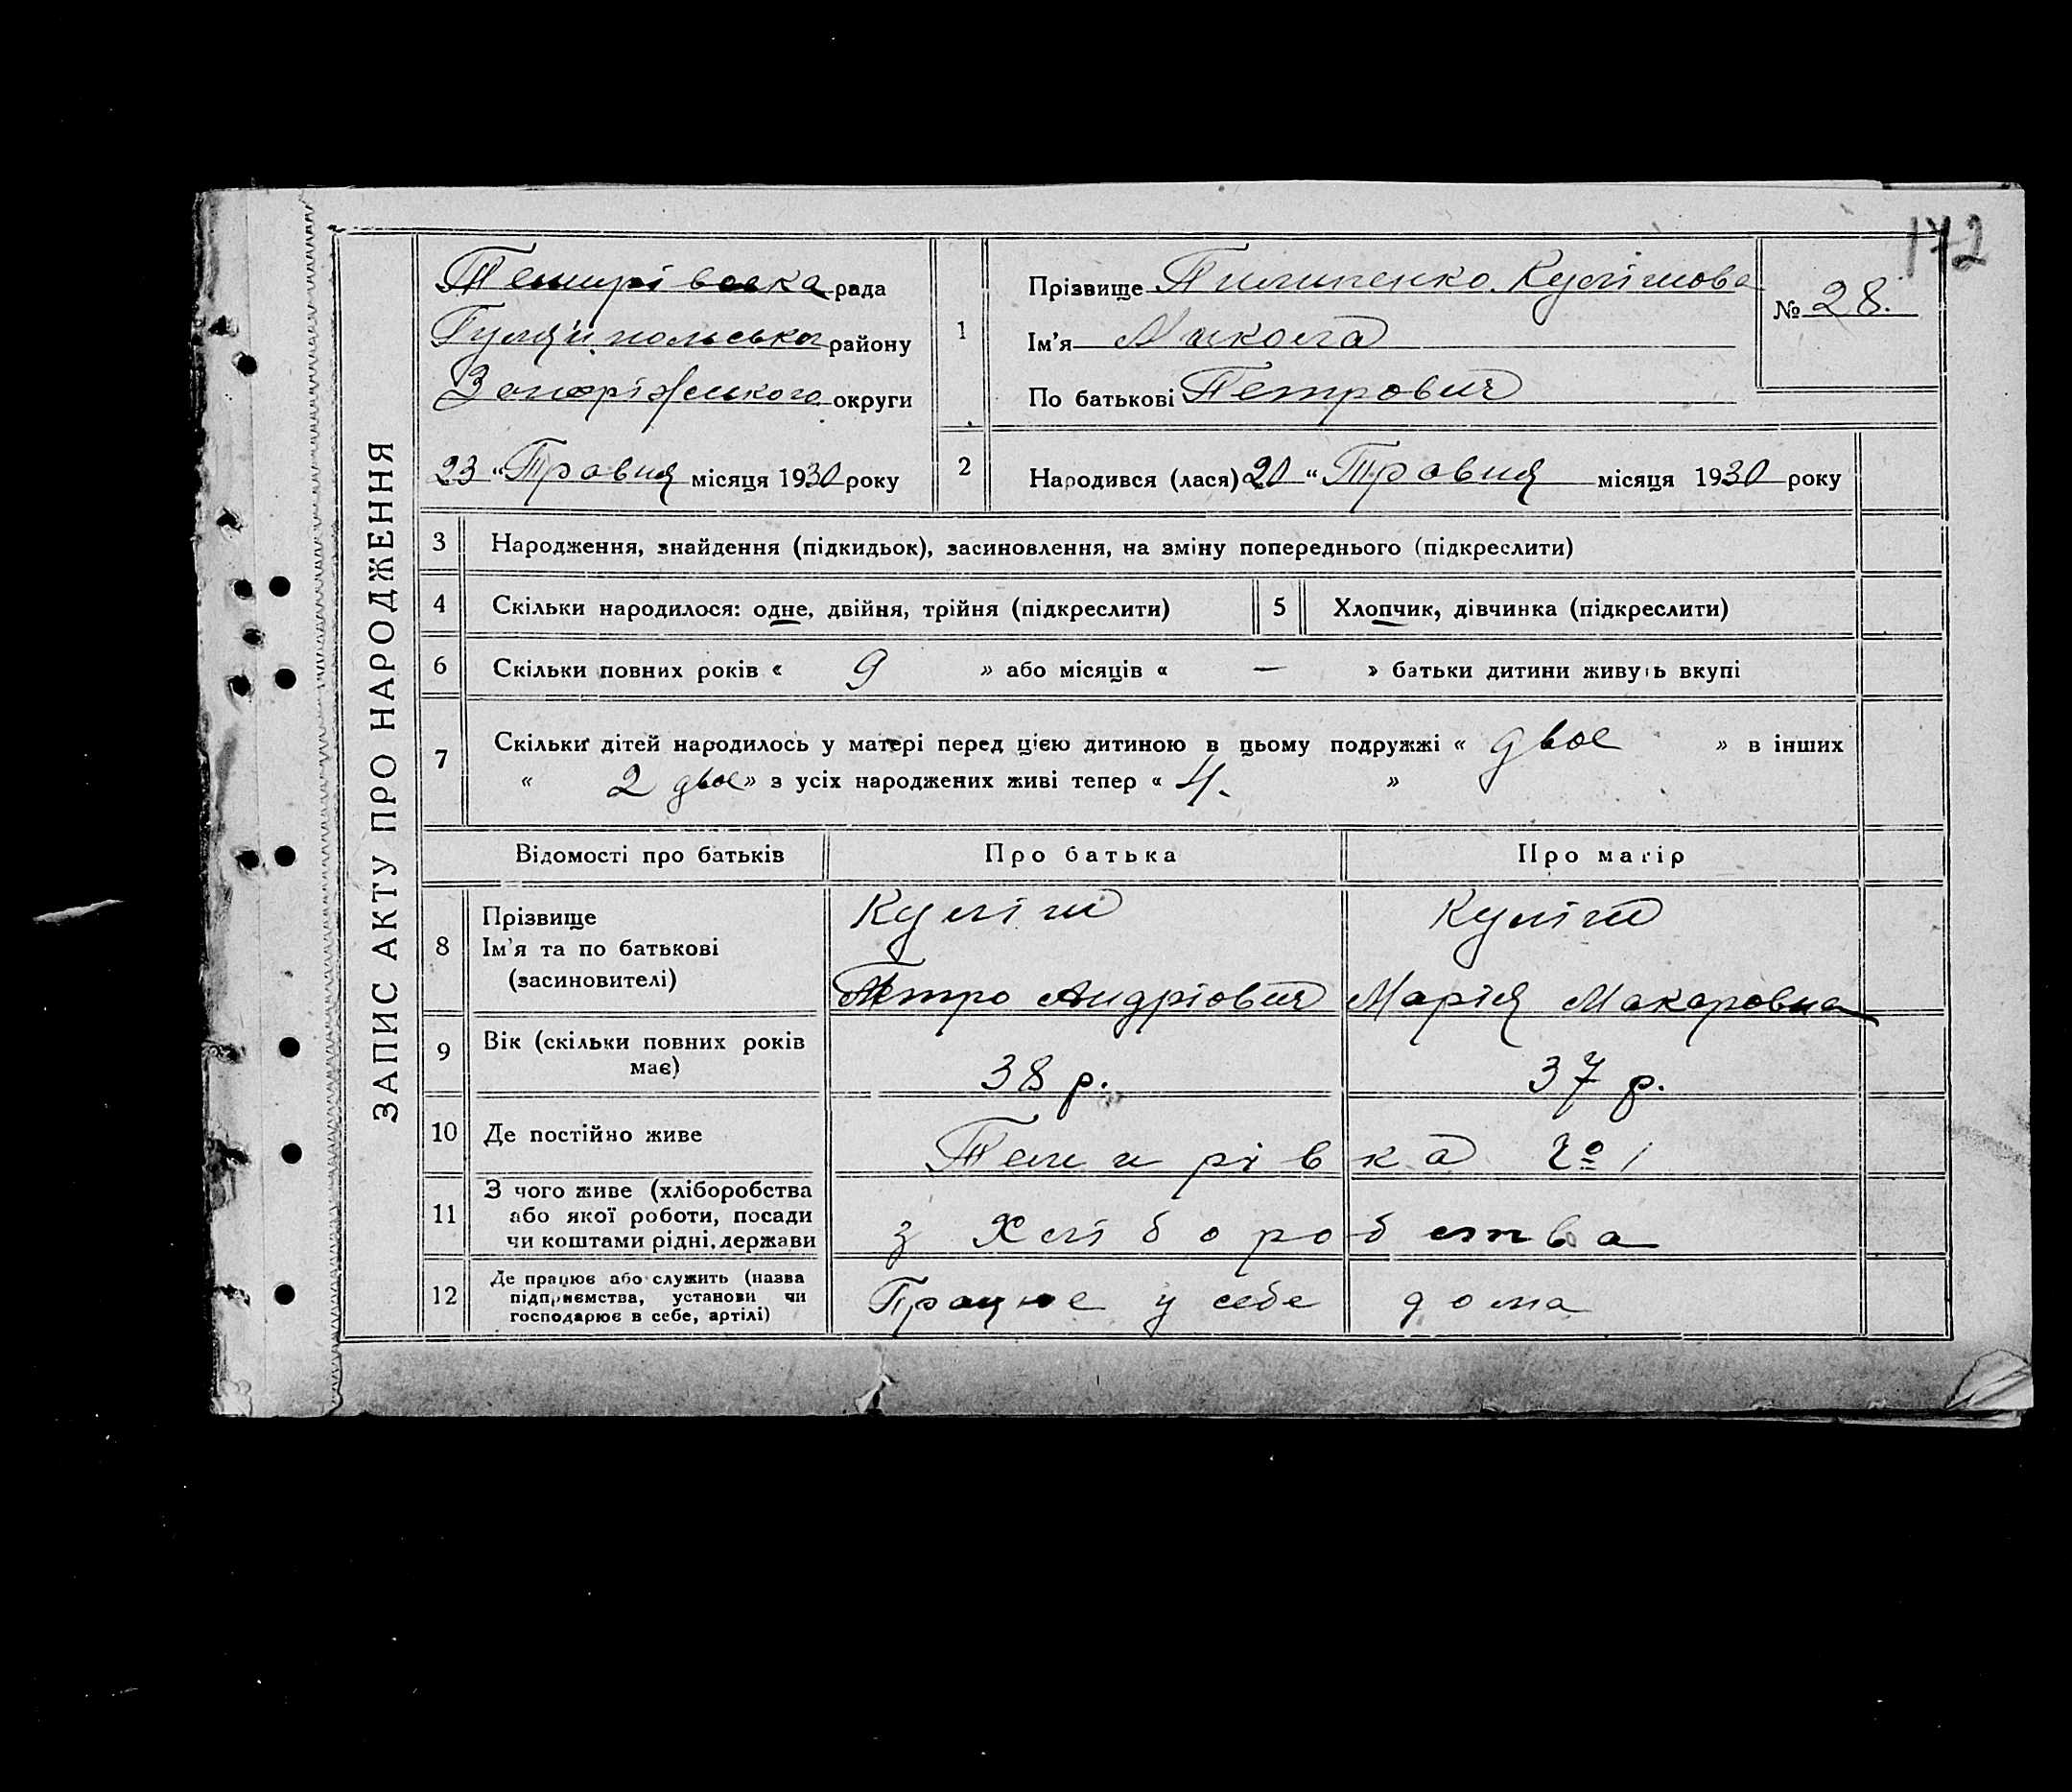 172
ЗАПИС АКТУ ПРО НАРОДЖЕННЯ
Темирівська рада
Гуляйпольська району
Запоріжського округи
23 "Травня місяця 1930 року
1 Прізвище Пилипенко. Кулішова
Ім'я Микола
По батькові Петрович
№ 28.
2 Народився (лася) 20 " Травня місяця 1930 року
3 Народження, знайдення (підкидьок), засиновлення, на зміну попереднього (підкреслити)
4 Скільки народилося: одне, двійня, трійня (підкреслити) 5 Хлопчик, дівчинка (підкреслити)
6 Скільки повних років « 9 » або місяців « — » батьки дитини живуть вкупі
7 Скільки дітей народилось у матері перед цією дитиною в цьому подружжі « двое » в інших
« 2 двое » з усіх народжених живі тепер « 4. »
Відомості про батьків Про батька Про матір
8 Прізвище Куліш Куліш
Ім'я та по батькові
(засиновителі) Петро Андріович Марія Макаровна
9 Вік (скільки повних років
має) 38 р. 37 р.
10 Де постійно живе Темирівка №1
11 З чого живе (хліборобства
або якої роботи, посади
чи коштами рідні, держави з Хліборобства
12 Де працює або служить (назва
підприємства, установи чи
господарює в себе, артілі) Працює у себе дома